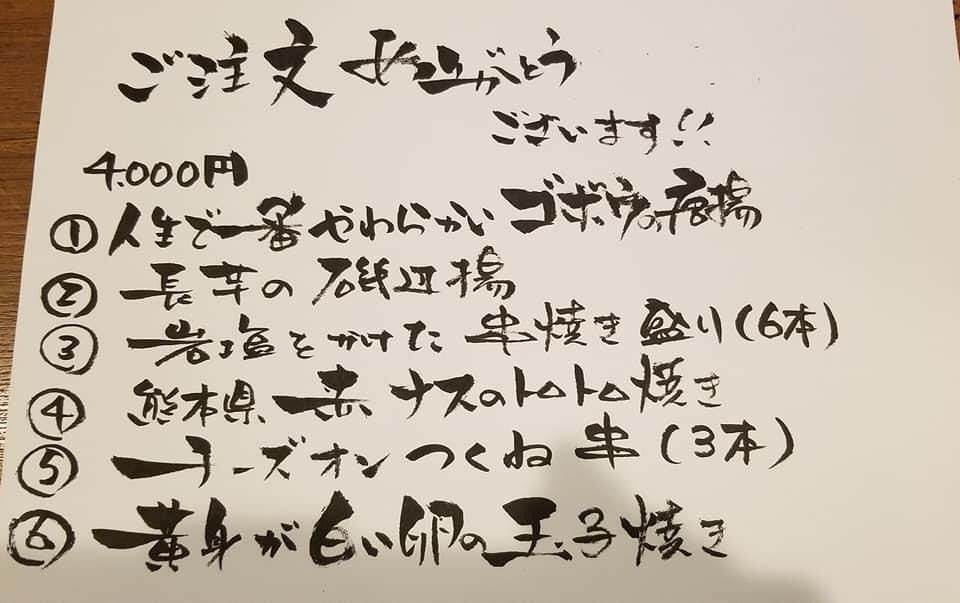 ご注文ありがとう
ございます!!
4.000円
① 人生で一番やわらかいゴボウの唐揚
② 長芋の磯辺揚
③ 岩塩をかけた串焼き盛り(6本)
④ 熊本県赤ナスのトロトロ焼き
⑤ チーズオンつくね串(3本)
⑥ 黄身が白い卵の玉子焼き